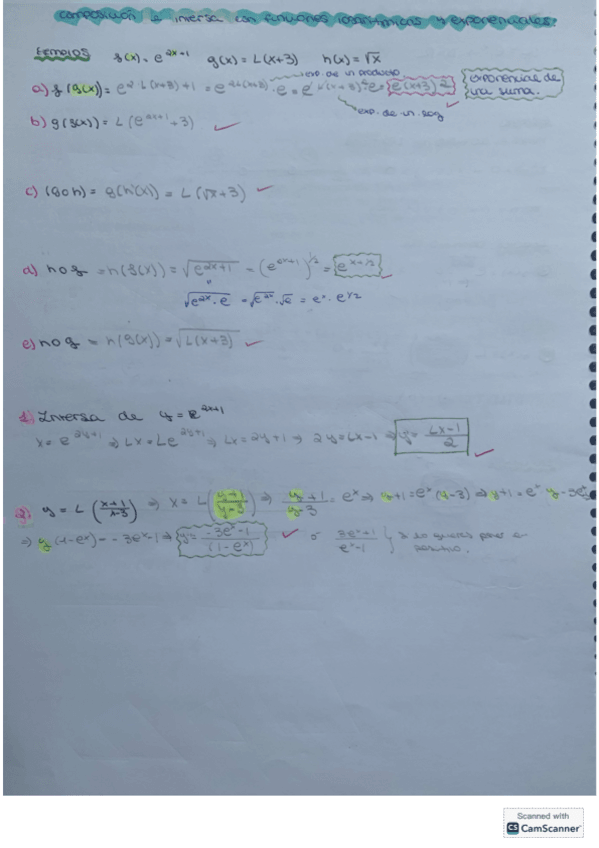 composición e inversa con funciones logarítmicas y exponenciales.
Ejemplos f(x) = e^{2x+1} g(x) = L(x+3) h(x) = √x
exp. de un producto
a) f(g(x)) = e^{2·L(x+3)+1} = · e = = e(x+3)^2 exponencial de una suma.
exp. de un log
b) g(f(x)) = L(e^{2x+1}+3)
c) (goh) = g(h(x)) = L(√x+3)
d) hof = h(f(x)) = √(e^{2x+1}) = (e^{2x+1})^{1/2} = e^{x+1/2}
√(e^{2x}·e) = √(e^{2x})·√e = e^x · e^{1/2}
e) hog = h(g(x)) = √(L(x+3))
1) Inversa de y = e^{2x+1}
x = e^{2y+1} ⇒ Lx = Le^{2y+1} ⇒ Lx = 2y+1 ⇒ 2y = Lx-1 ⇒ y = (Lx-1)/2
2) y = L((x+1)/(x-3)) ⇒ x = L((y+1)/(y-3)) ⇒ (y+1)/(y-3) = e^x ⇒ y+1 = e^x(y-3) ⇒ y+1 = e^x y-3e^x
⇒ y(1-e^x) = -3e^x-1 ⇒ y = (-3e^x-1)/(1-e^x) o (3e^x+1)/(e^x-1) } si lo quieres poner en positivo.
Scanned with
CS CamScanner